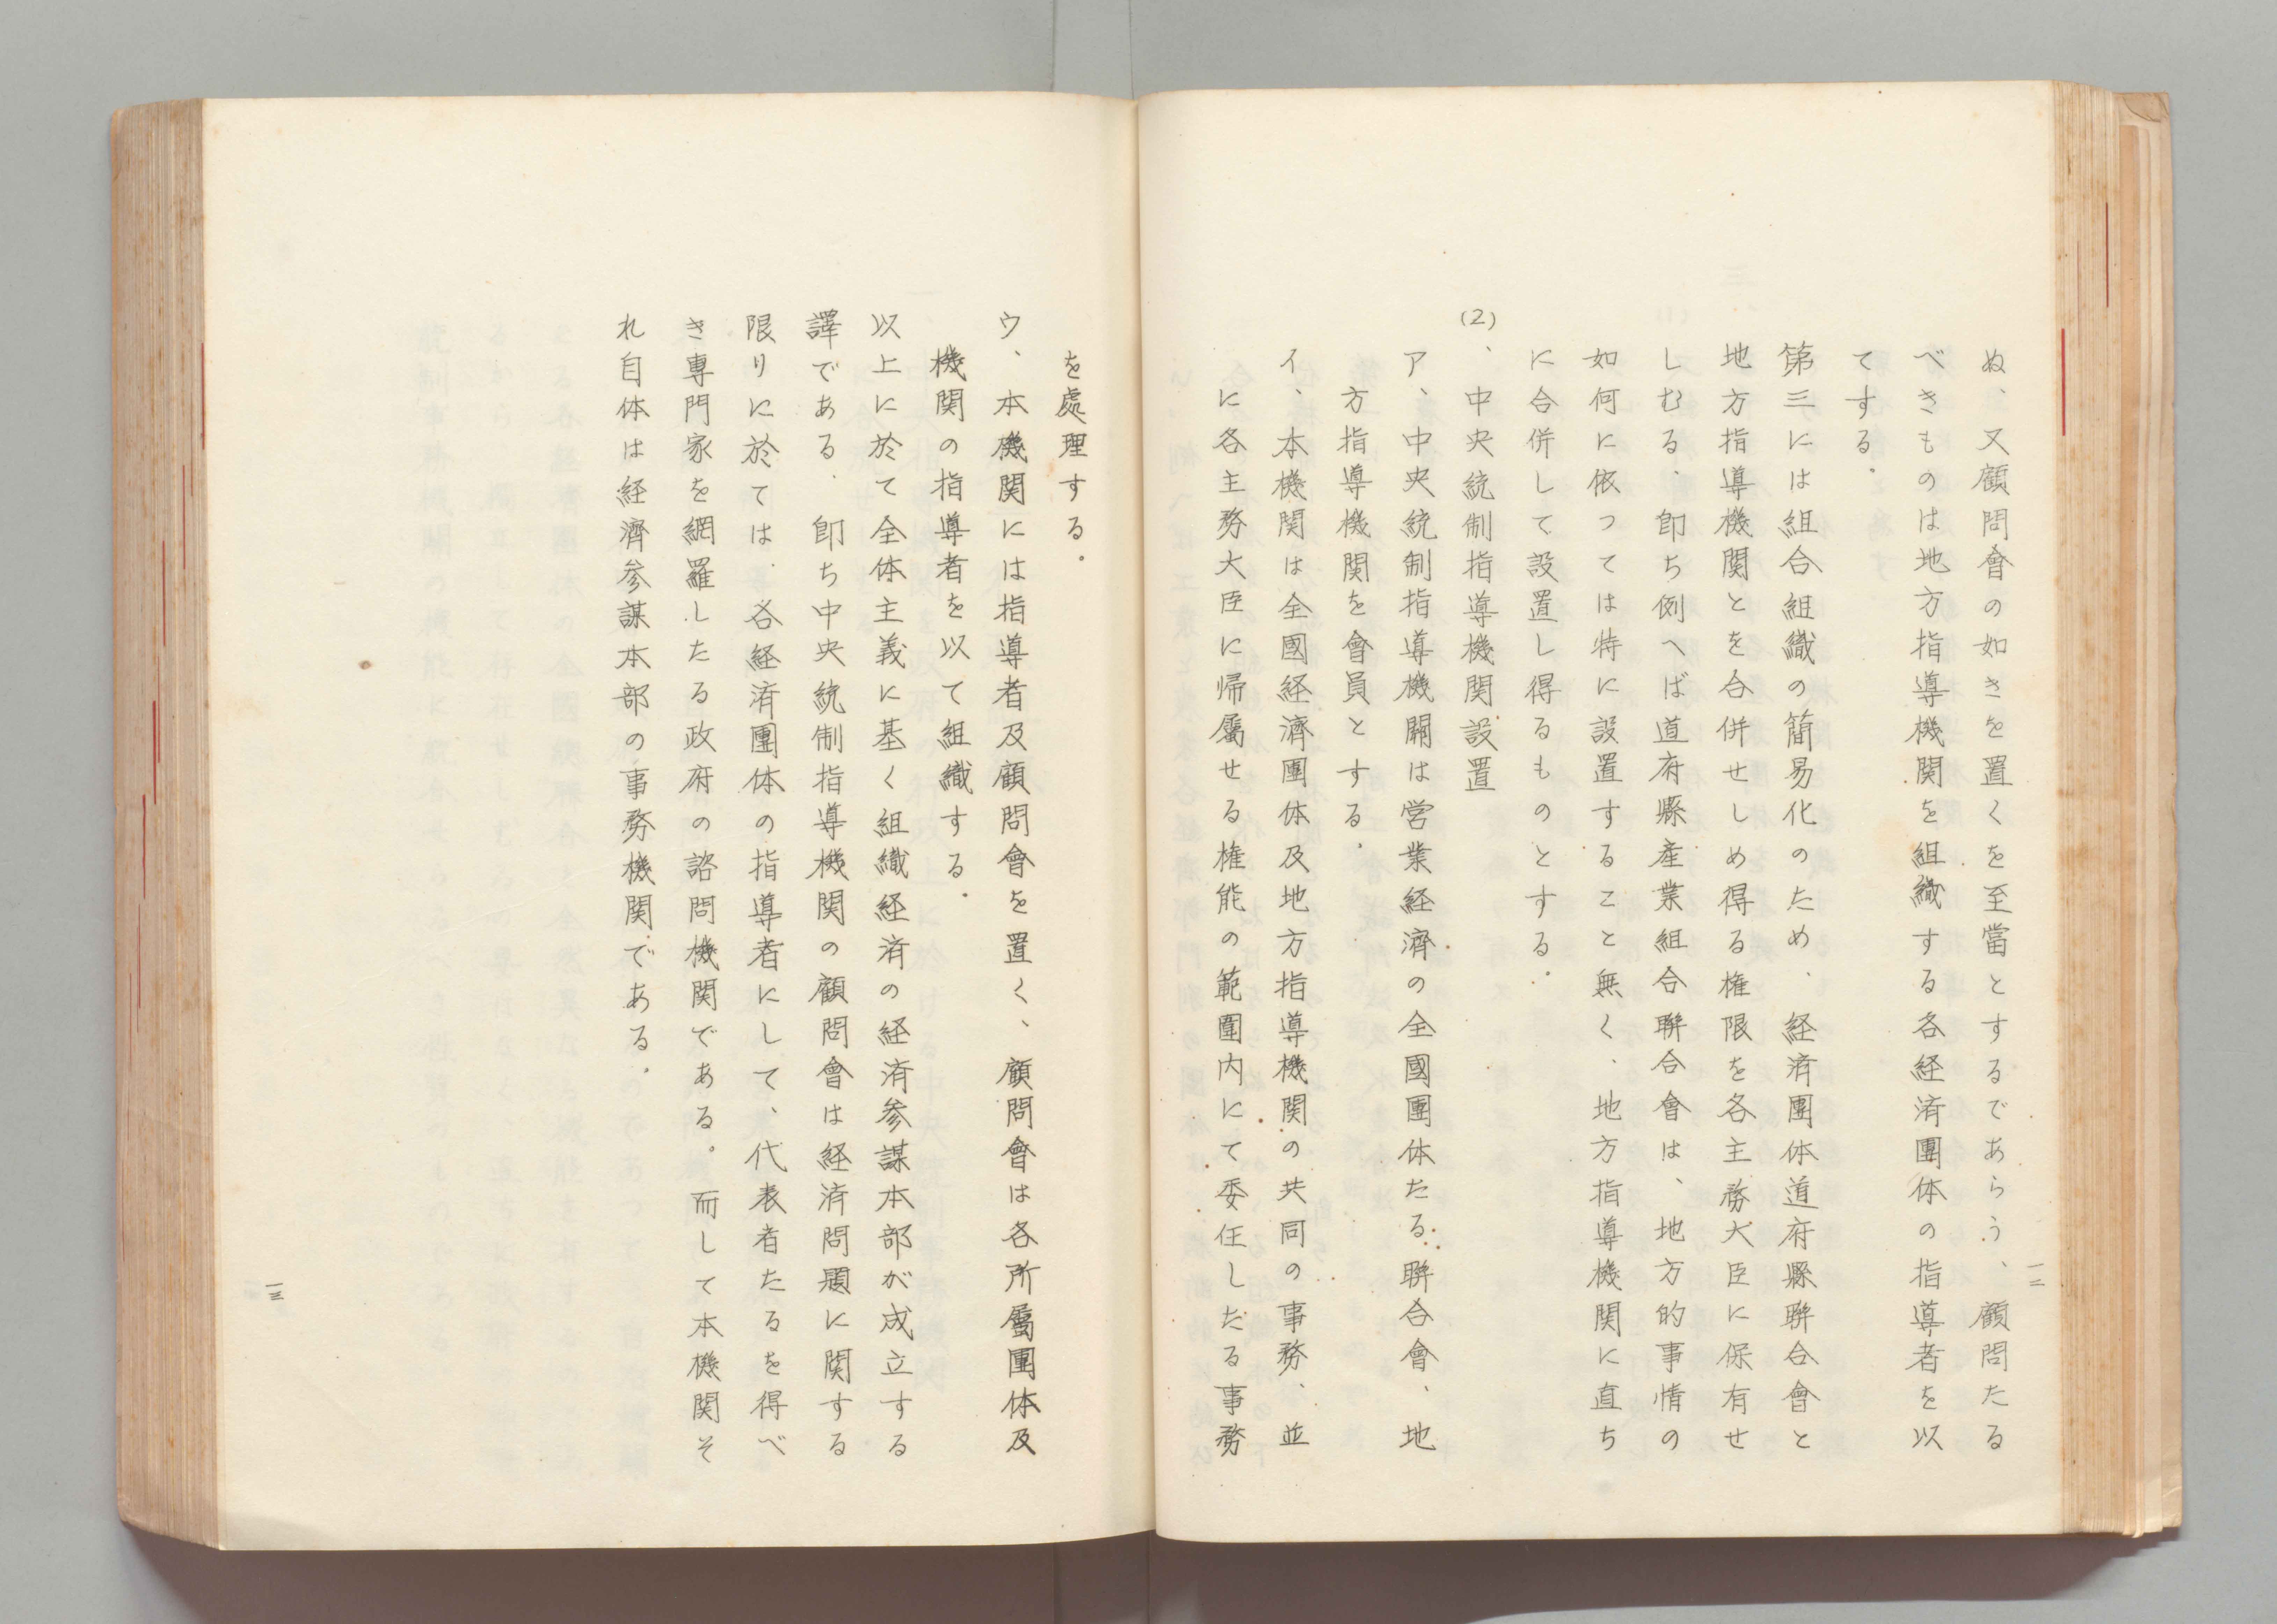 ぬ、又顧問會の如きを置くを至當とするであらう、顧問たる
べきものは地方指導機関を組織する各経済團体の指導者を以
てする。
第三には組合組織の簡易化のため、経済團体道府縣聯合會と
地方指導機関とを合併せしめ得る権限を各主務大臣に保有せ
しむる、即ち例へば道府縣産業組合聯合會は、地方的事情の
如何に依つては特に設置すること無く、地方指導機関に直ち
に合併して設置し得るものとする。
(2)、中央統制指導機関設置
ア、中央統制指導機関は営業経濟の全國團体たる聯合會、地
方指導機関を會員とする。
イ、本機関は全國経濟團体及地方指導機関の共同の事務、並
に各主務大臣に帰屬せる権能の範圍内にて委任しだる事務
一二
を處理する。
ウ、本機関には指導者及顧問會を置く、顧問會は各所屬團体及
機関の指導者を以て組織する。
以上に於て全体主義に基く組織経済の経済参謀本部が成立する
譯である、即ち中央統制指導機関の顧問會は経済問題に関する
限りに於ては、各経済團体の指導者にして、代表者たるを得べ
き専門家を網羅したる政府の諮問機関である。而して本機関そ
れ自体は経濟参謀本部の事務機関である。
一三